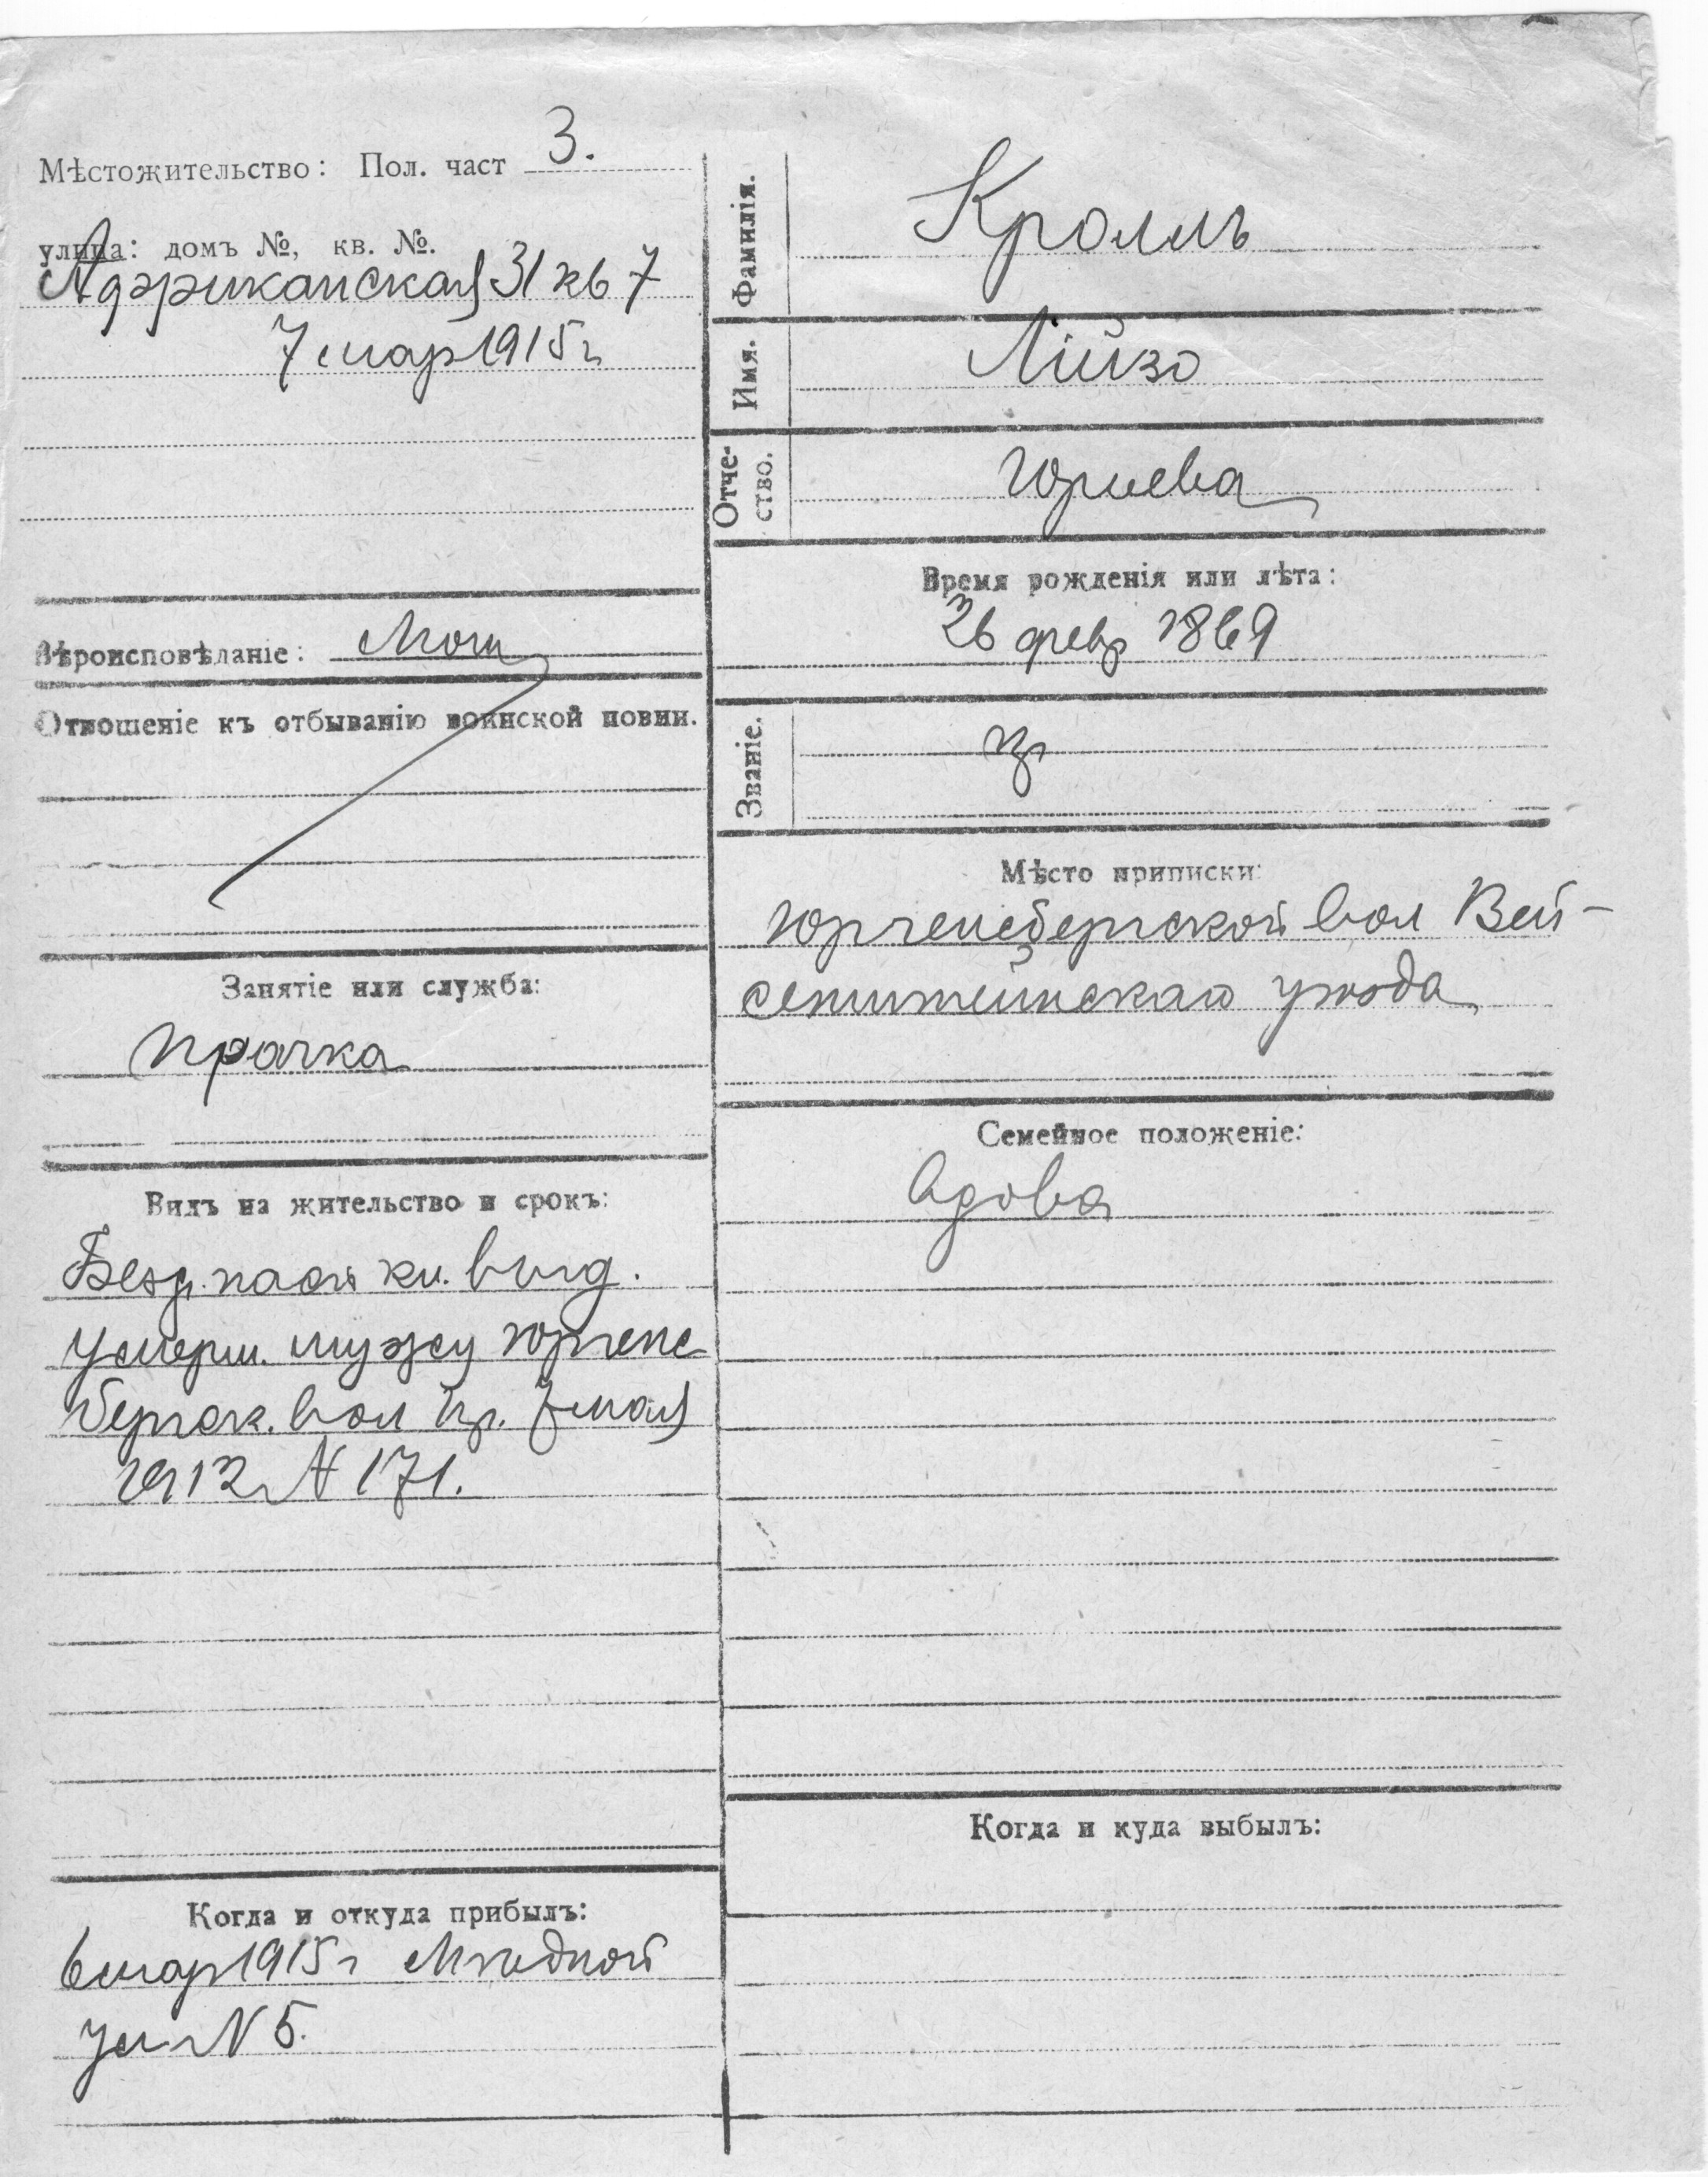 Мѣстожительство: Пол. част 3.
улица: домъ №, кв. №.
Африканская 31 кв 7
7 мар 1915 г
Вѣроисповѣданіе: Лют
Отношеніе къ отбыванію воинской повин.
Занятіе или служба:
Прачка
Видъ на жительство и срокъ:
Безср. пасп. кн. выд.
умерш. мужу Юргенс
бергск. вол пр. 7 мая
1912 г N 171.
Когда и откуда прибылъ:
6 мар 1915 г Мѣдной
ул N 5.
Фамилія.
Кролль
Имя.
Лійзо
Отче-
ство.
Юрьева
Время рожденія или лѣта:
26 февр 1869
Званіе.
кр
Мѣсто приписки:
Юргенсбергской вол Вей-
сенштейнскаго уѣзда
Семейное положеніе:
вдова
Когда и куда выбылъ: